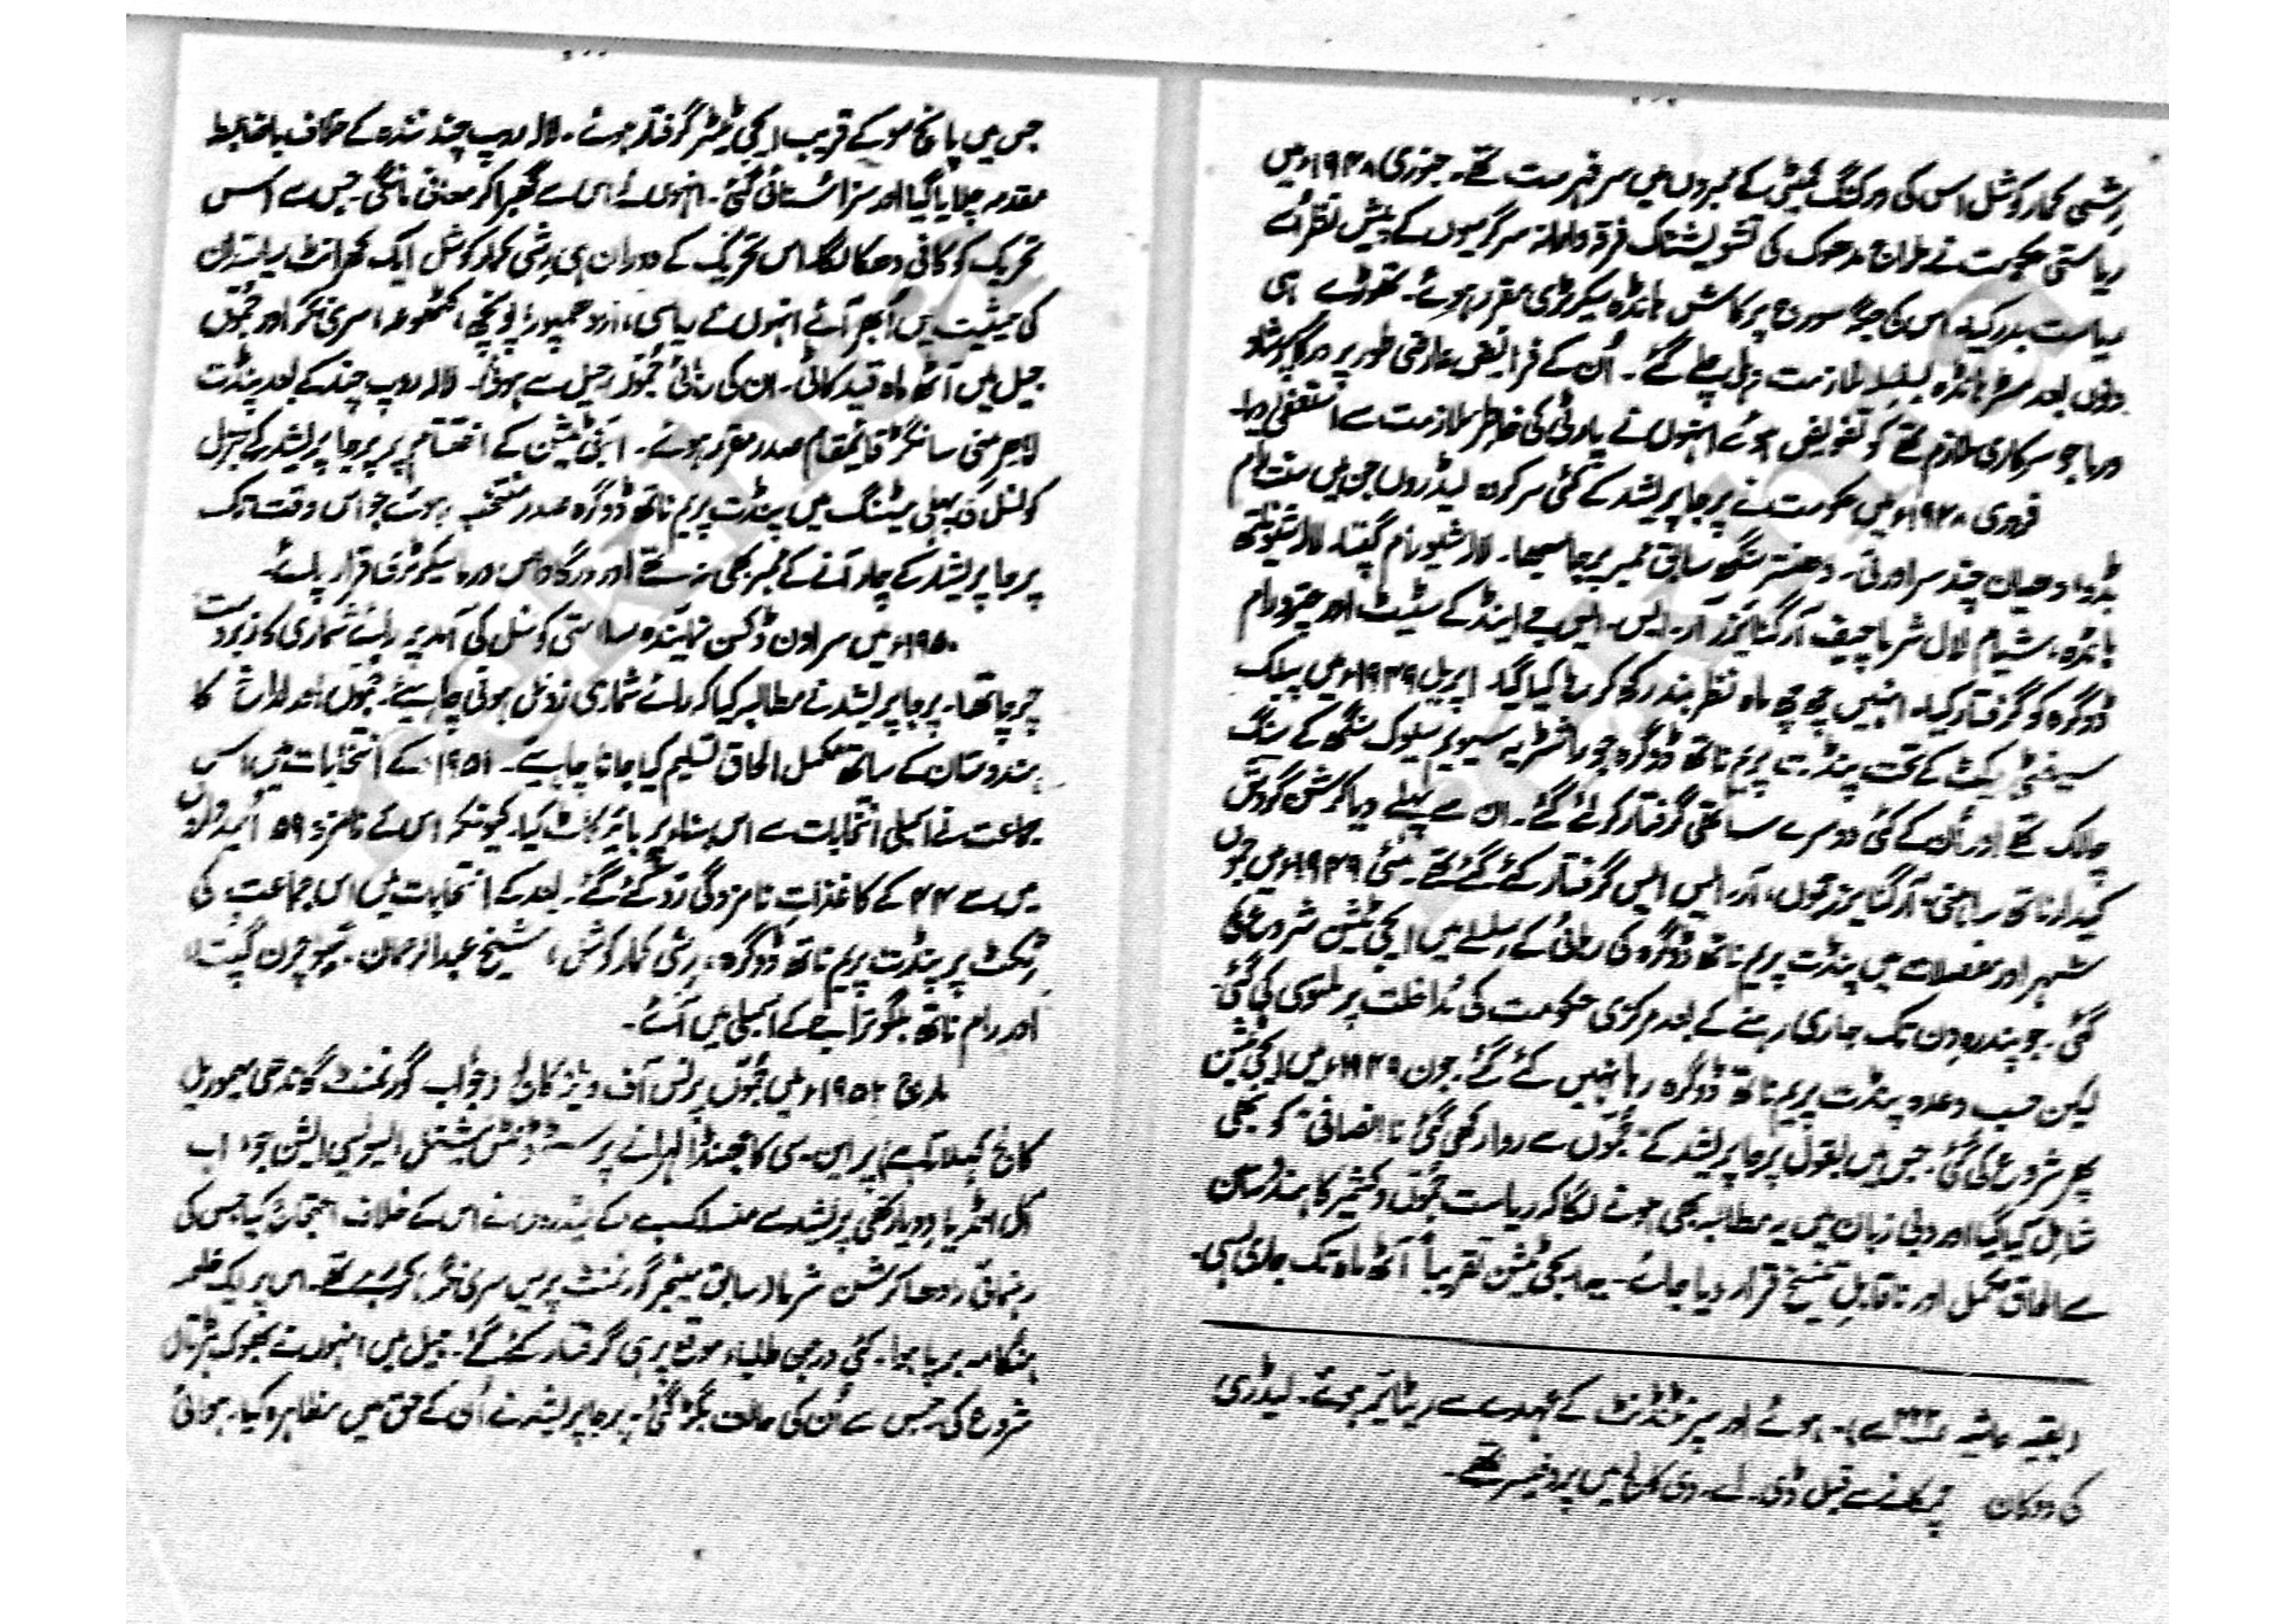 رشی کمار کوشل اس کی ورکنگ کمیٹی کے ممبروں میں سر فہرست تھے۔ جنوری ۱۹۴۸ء میں
ریاستی حکومت نے بلراج مدھوک کی تشویشناک فرقہ وارانہ سرگرمیوں کے پیش نظر اُسے
ریاست بدر کیا۔ اس کی جگہ سورج پرکاش ہانڈہ سیکرٹری مقرر ہوئے۔ تھوڑے ہی
دنوں بعد مسٹر ہانڈہ بسلسلہ ملازمت دہلی چلے گئے۔ اُن کے فرائض عارضی طور پر
ورما جو سرکاری ملازم تھے کو تفویض ہوئے انہوں نے پارٹی کی خاطر ملازمت سے استعفیٰ دیا۔
فروری ۱۹۴۸ء میں حکومت نے پرجا پریشد کے کئی سرکردہ لیڈروں جن میں سنت رام
بڈو، دھیان چند سراورتی۔ دھنتر سنگھ سابق ممبر پرجا سبھا۔ لالہ شیو رام گپتا۔ لالہ شیو ناتھ
پانڈہ، شیام لال شرما چیف آرگنائیزر آر۔ ایس۔ ایس جے اینڈ کے سٹیٹ اور چترو رام
ڈوگرہ کو گرفتار کیا۔ انہیں چھ چھ ماہ نظر بند رکھ کر رہا کیا گیا۔ اپریل ۱۹۴۹ء میں پبلک
سیفٹی ایکٹ کے تحت پنڈت پریم ناتھ ڈوگرہ جو راشٹریہ سیویم سیوک سنگھ کے سنگ
چالک تھے اور اُن کے کئی دوسرے ساتھی گرفتار کر لئے گئے۔ ان سے پہلے دیا کرشن گردش
کیدار ناتھ ساہنی، آرگنائیزر جموں، آر۔ ایس ایس گرفتار کئے گئے تھے۔ مئی ۱۹۴۹ء میں جموں
شہر اور مفصلات میں پنڈت پریم ناتھ ڈوگرہ کی رہائی کے سلسلے میں ایجی ٹیشن شروع کی
گئی۔ جو پندرہ دن تک جاری رہنے کے بعد مرکزی حکومت کی مُداخلت پر ملتوی کی گئی۔
لیکن حسب وعدہ پنڈت پریم ناتھ ڈوگرہ رہا نہیں کئے گئے۔ جون ۱۹۴۹ء میں ایجی ٹیشن
پھر شروع کی گئی۔ جس میں بقول پرجا پریشد کے "جموں سے روا رکھی گئی نا انصافی" کو بھی
شامل کیا گیا اور دبی زبان میں یہ مطالبہ بھی ہونے لگا کہ ریاست جموں و کشمیر کا ہندوستان
سے الحاق مکمل اور ناقابلِ تنسیخ قرار دیا جائے۔ یہ ایجی ٹیشن تقریباً آٹھ ماہ تک جاری رہی۔
(بقیہ حاشیہ سے)۔ ہوئے اور سپرنٹنڈنٹ کے عہدے سے ریٹائیر ہوئے۔ لیڈری
کی دوکان چمکانے سے قبل ڈی۔ اے۔ وی کالج میں پروفیسر تھے۔
جس میں پانچ سو کے قریب ایجی ٹیٹر گرفتار ہوئے۔ لالہ روپ چند نندہ کے خلاف باضابطہ
مقدمہ چلایا گیا اور سزا سُنائی گئی۔ انہوں نے اس سے گھبرا کر معافی مانگی۔ جس سے اس
تحریک کو کافی دھکا لگا۔ اس تحریک کے دوران ہی رشی کمار کوشل ایک گھرانٹ سیاستدان
کی حیثیت میں اُبھر آئے انہوں نے ریاسی، اُردھمپور، پونچھ، کٹھوعہ، سری نگر اور جموں
جیل میں آٹھ ماہ قید کاٹی۔ ان کی رہائی جموں جیل سے ہوئی۔ لالہ روپ چند کے بعد پنڈت
سانگڑہ قائمقام صدر مقرر ہوئے۔ ایجی ٹیشن کے اختتام پر پرجا پریشد کے جنرل
کونسل کی پہلی میٹنگ میں پنڈت پریم ناتھ ڈوگرہ صدر منتخب ہوئے جو اس وقت تک
پرجا پریشد کے چار آنے کے ممبر بھی نہ تھے اور درگا داس ورما سیکرٹری قرار پائے۔
۱۹۵۰ء میں سر اون ڈکسن نمائیندہ سلامتی کونسل کی آمد پر رائے شماری کا زبردست
چرچا تھا۔ پرجا پریشد نے مطالبہ کیا کہ رائے شماری زونل ہونی چاہیئے۔ جموں اور لداخ کا
ہندوستان کے ساتھ مکمل الحاق تسلیم کیا جانا چاہیے۔ ۱۹۵۱ء کے انتخابات میں اس
جماعت نے اسمبلی انتخابات سے اس بناء پر بائیکاٹ کیا۔ کیونکہ اس کے نامزد ۵۹ اُمیدواروں
میں سے ۴۲ کے کاغذاتِ نامزدگی رَد کئے گئے۔ بعد کے انتخابات میں اس جماعت کی
ٹکٹ پر پنڈت پریم ناتھ ڈوگرہ، رشی کمار کوشل، شیخ عبدالرحمان۔ شو چرن گپتا
اور رام ناتھ بلگوترا جے کے اسمبلی میں آئے۔
مارچ ۱۹۵۲ء میں جموں پرنس آف ویلز کالج (جو اب گورنمنٹ گاندھی میموریل
کالج کہلاتا ہے) پر این۔ سی کا جھنڈا لہرانے پر سٹوڈنٹس نیشنل ایسوسی ایشن جو اب
آل انڈیا ودیارتھی پریشد سے منسلک ہے کے لیڈروں نے اس کے خلاف احتجاج کیا جس کی
رہنمائی رادھا کرشن شرما (سابق مینجر گورنمنٹ پریس سری نگر) کر رہے تھے۔ اس پر ایک
ہنگامہ برپا ہوا۔ کئی درجن طلباء موقع پر ہی گرفتار کئے گئے۔ جیل میں انہوں نے بھوک ہڑتال
شروع کی۔ جس سے اُن کی حالت بگڑ گئی۔ پرجا پریشد نے اُن کے حق میں مظاہرہ کیا۔ جوابی